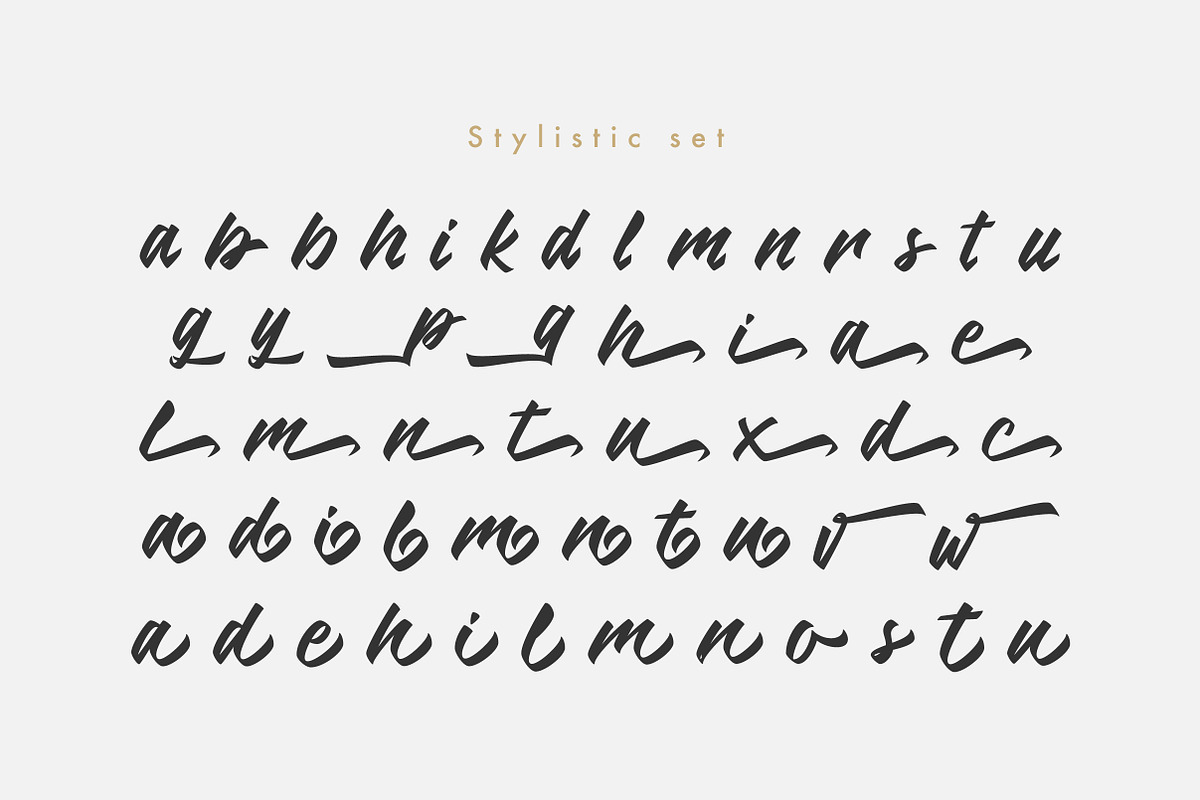 Stylistic set
a b b h i k d l m n r s t u
g y p q h i a e
l m n t u x d c
a d i l m n t u v w
a d e h i l m n o s t u